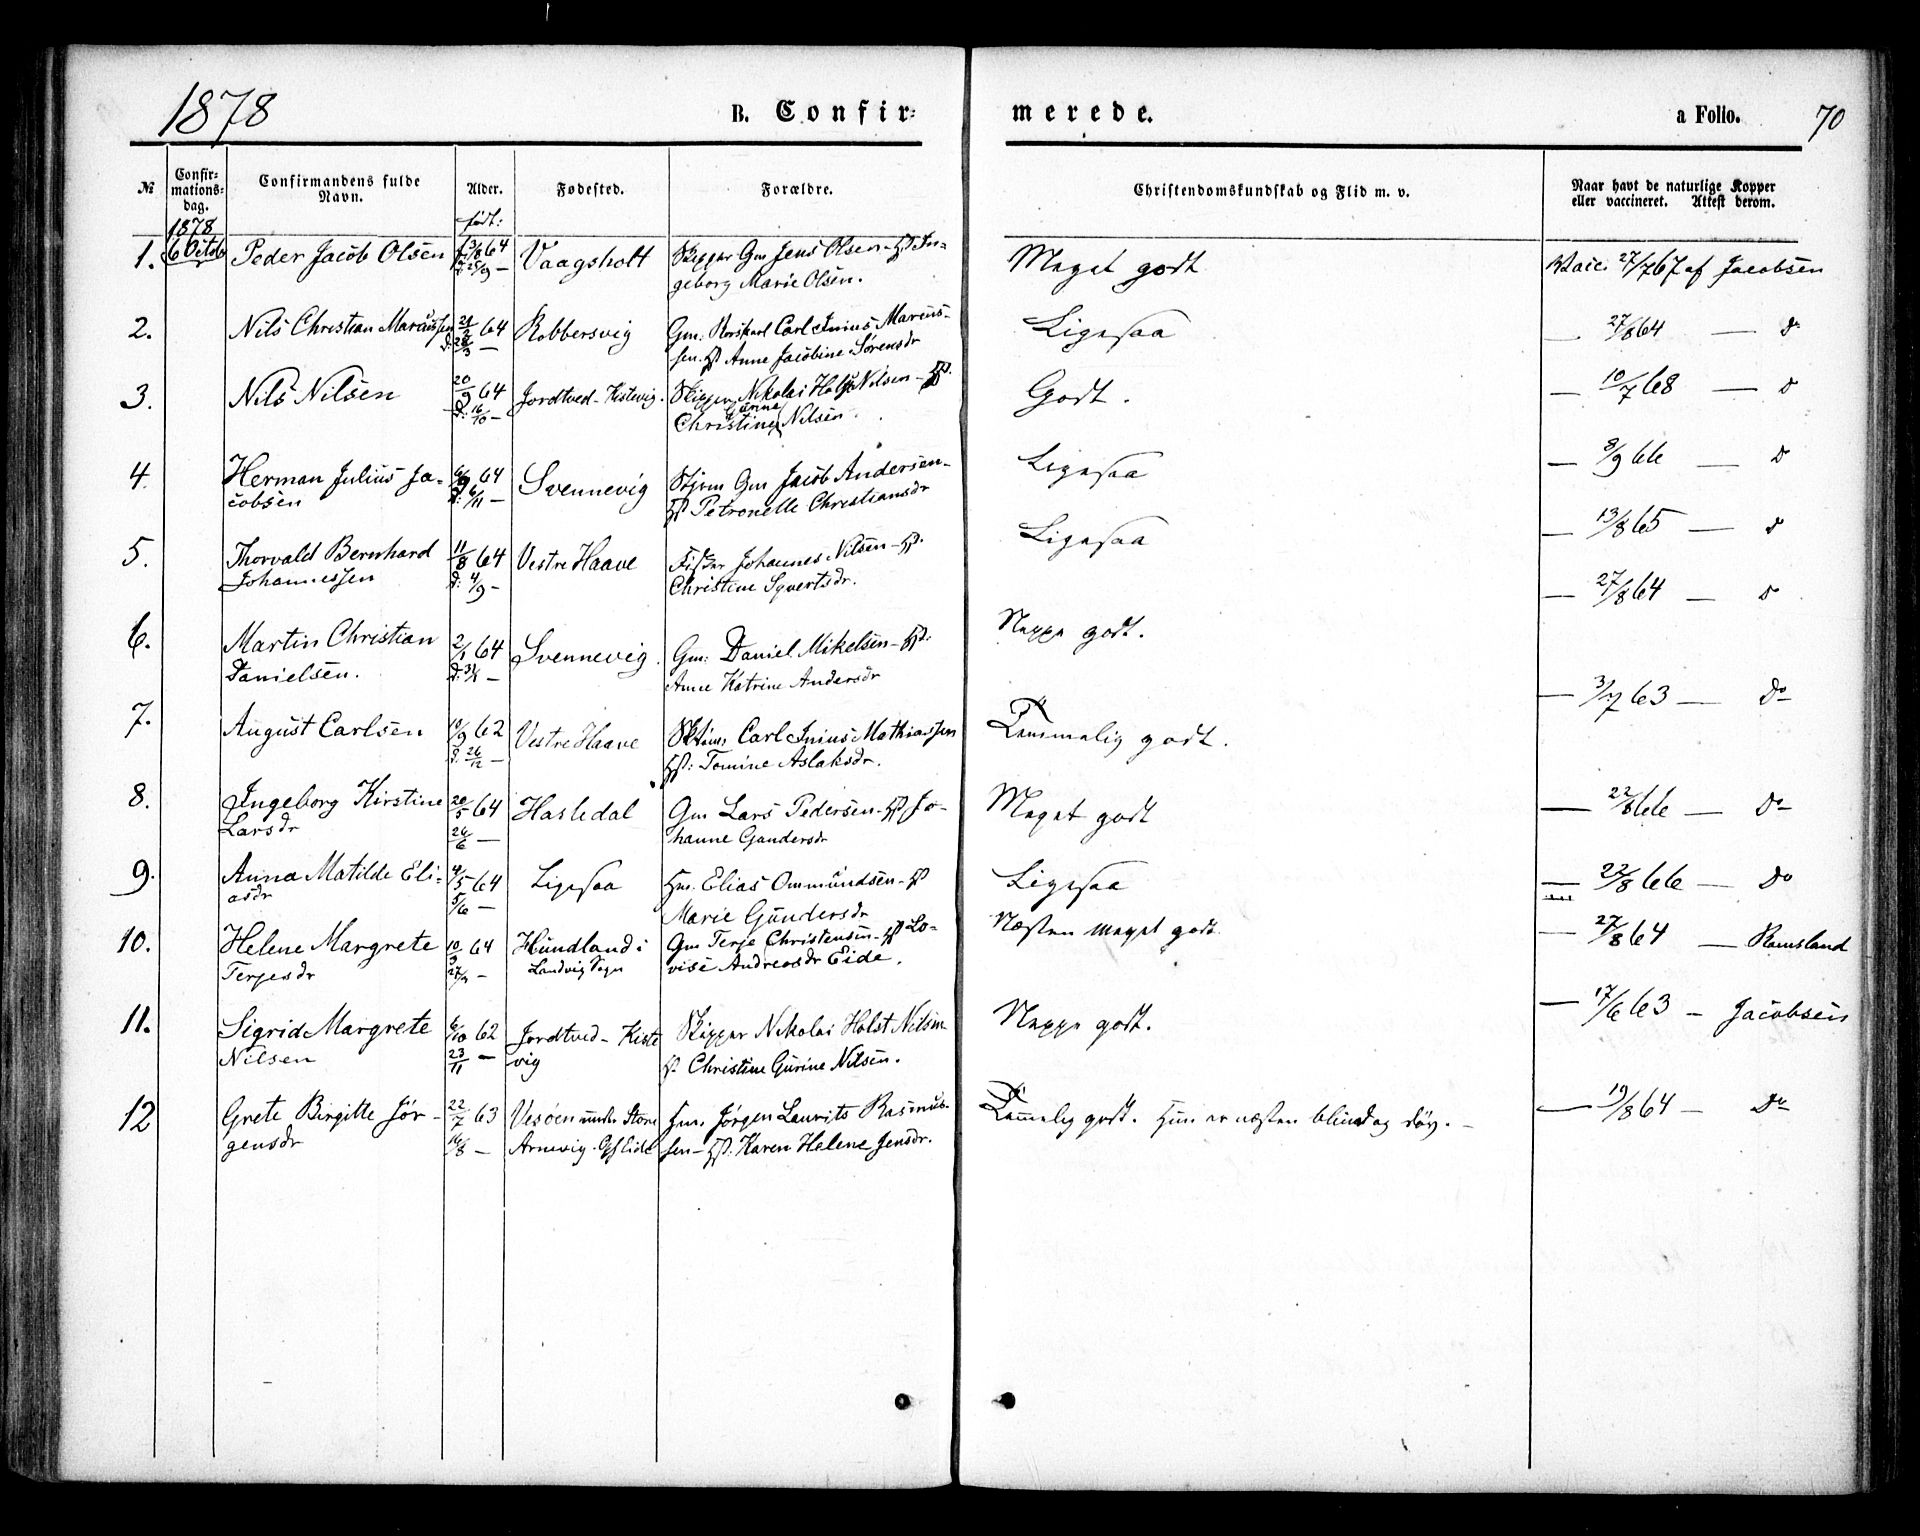 1878
B. Confir=
merede.
a Folio. 70
№
Confir-
mations-
dag.
Confirmandens fulde
Navn.
Alder.
Fødested.
Forældre.
Christendomskundskab og Flid m. v.
Naar havt de naturlige Kopper
eller vaccineret. Attest derom.
1878
født:
1. 6 Octob Peder Jacob Olsen 64 Vaagsholt Skipper Gm Jens Olsen - In-
25/9 - geborg Marie Olsen.
Meget godt
Vacc. 27/7 67 af Jacobsen
2. Nils Christian Marcussen 64 Robbersvig Gm. Carl Junius Marcus-
sen. Anne Jacobine Sørensdr
Ligesaa
— 27/8 64 — do
3. Nils Nilsen 20/9 64 Jordtved - Kistevig. Skipper Nikolai Holst Nilsen -
D: 16/10 - Christine Gurine Nilsen
Godt.
— 10/7 68 — do
4. Herman Julius Ja- 6/9 64 Svennevig Styrm Gm Jacob Andersen -
cobsen D: 6/11 - Petronelle Christiansdr
Ligesaa
— 8/9 66 — do
5. Thorvald Bernhard 11/8 64 Vestre Haave Fisker Johannes Nilsen -
Johannessen D: 4/9 - Christine Syvertsdr.
Ligesaa
— 13/8 65 — do
6. Martin Christian 2/1 64 Svennevig. Gm: Daniel Mikelsen -
Danielsen. Anne Katrine Andersdr
Neppe godt.
— 27/8 64 — do
7. August Carlsen 10/9 62 Vestre Haave Carl Junius Mathiassen
D: 26/12 - Tomine Aslaksdr.
Temmelig godt.
— 3/7 63 — Do
8. Ingeborg Kirstine 20/5 64 Hasledal Gm Lars Pedersen - Jo-
Larsdr 26/6 — hanne Gundersdr
Meget godt
— 22/8 66 — Do
9. Anna Matilde Eli- 4/5 64 Ligesaa Hm. Elias Ommundsen -
asdr 5/6 — Marie Gundersdr
Ligesaa
— 22/8 66 — Do
10. Helene Margrete 10/9 64 Hundland i Gm Terje Christensen - Lo-
Terjesdr Landvig Sogn vise Andreasdr Eide.
Næsten meget godt
— 27/8 64 — Ramsland
11. Sigrid Margrete 6/10 62 Jordtved - Kiste Skipper Nikolai Holst Nilsen
Nilsen 23/11 — vig Christine Gurine Nilsen.
Neppe godt.
— 17/6 63 - Jacobsen
12 Grete Birgitte Jør- 22/7 63 Vesøen under Store Gm. Jørgen Laurits Rasmus-
gensdr 16/8 - Arnevig. sen - Karen Helene Jensdr.
Temmelig godt. Hun er næsten blind og døv. -
— 19/8 64 — Do